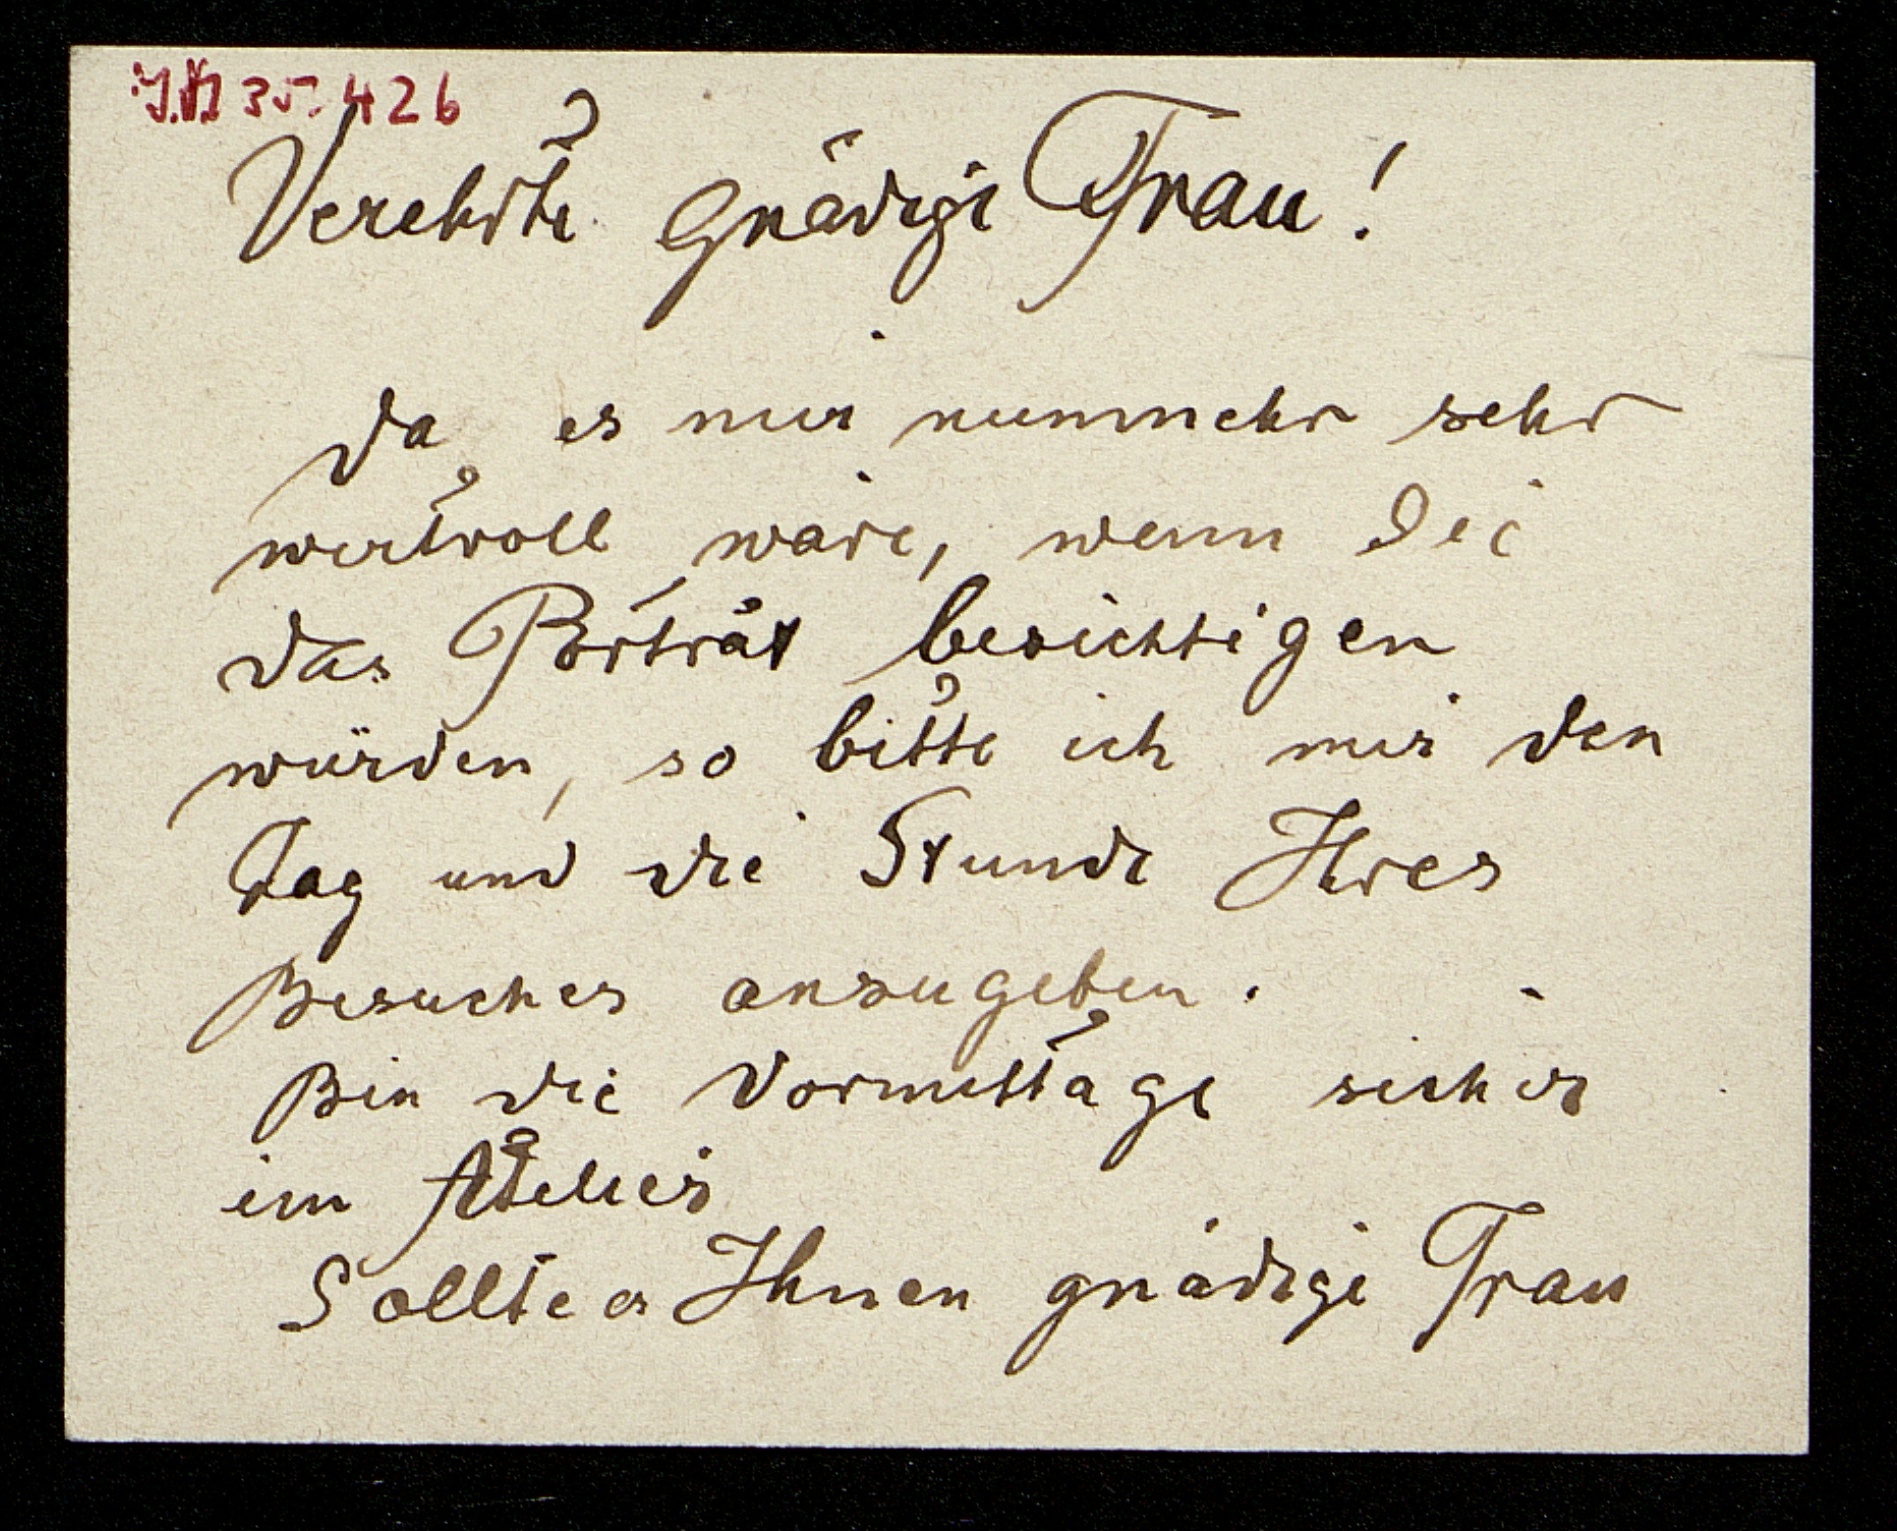 I.N 35.426
Verehrte Gnädige Frau!
da es mir nunmehr sehr
wertvoll wäre, wenn Sie
das Porträt besichtigen
würden, so bitte ich mir den
Tag und die Stunde Ihres
Besuches anzugeben.
Bin die Vormittage sicher
im Atelier
Sollte es Ihnen gnädige Frau